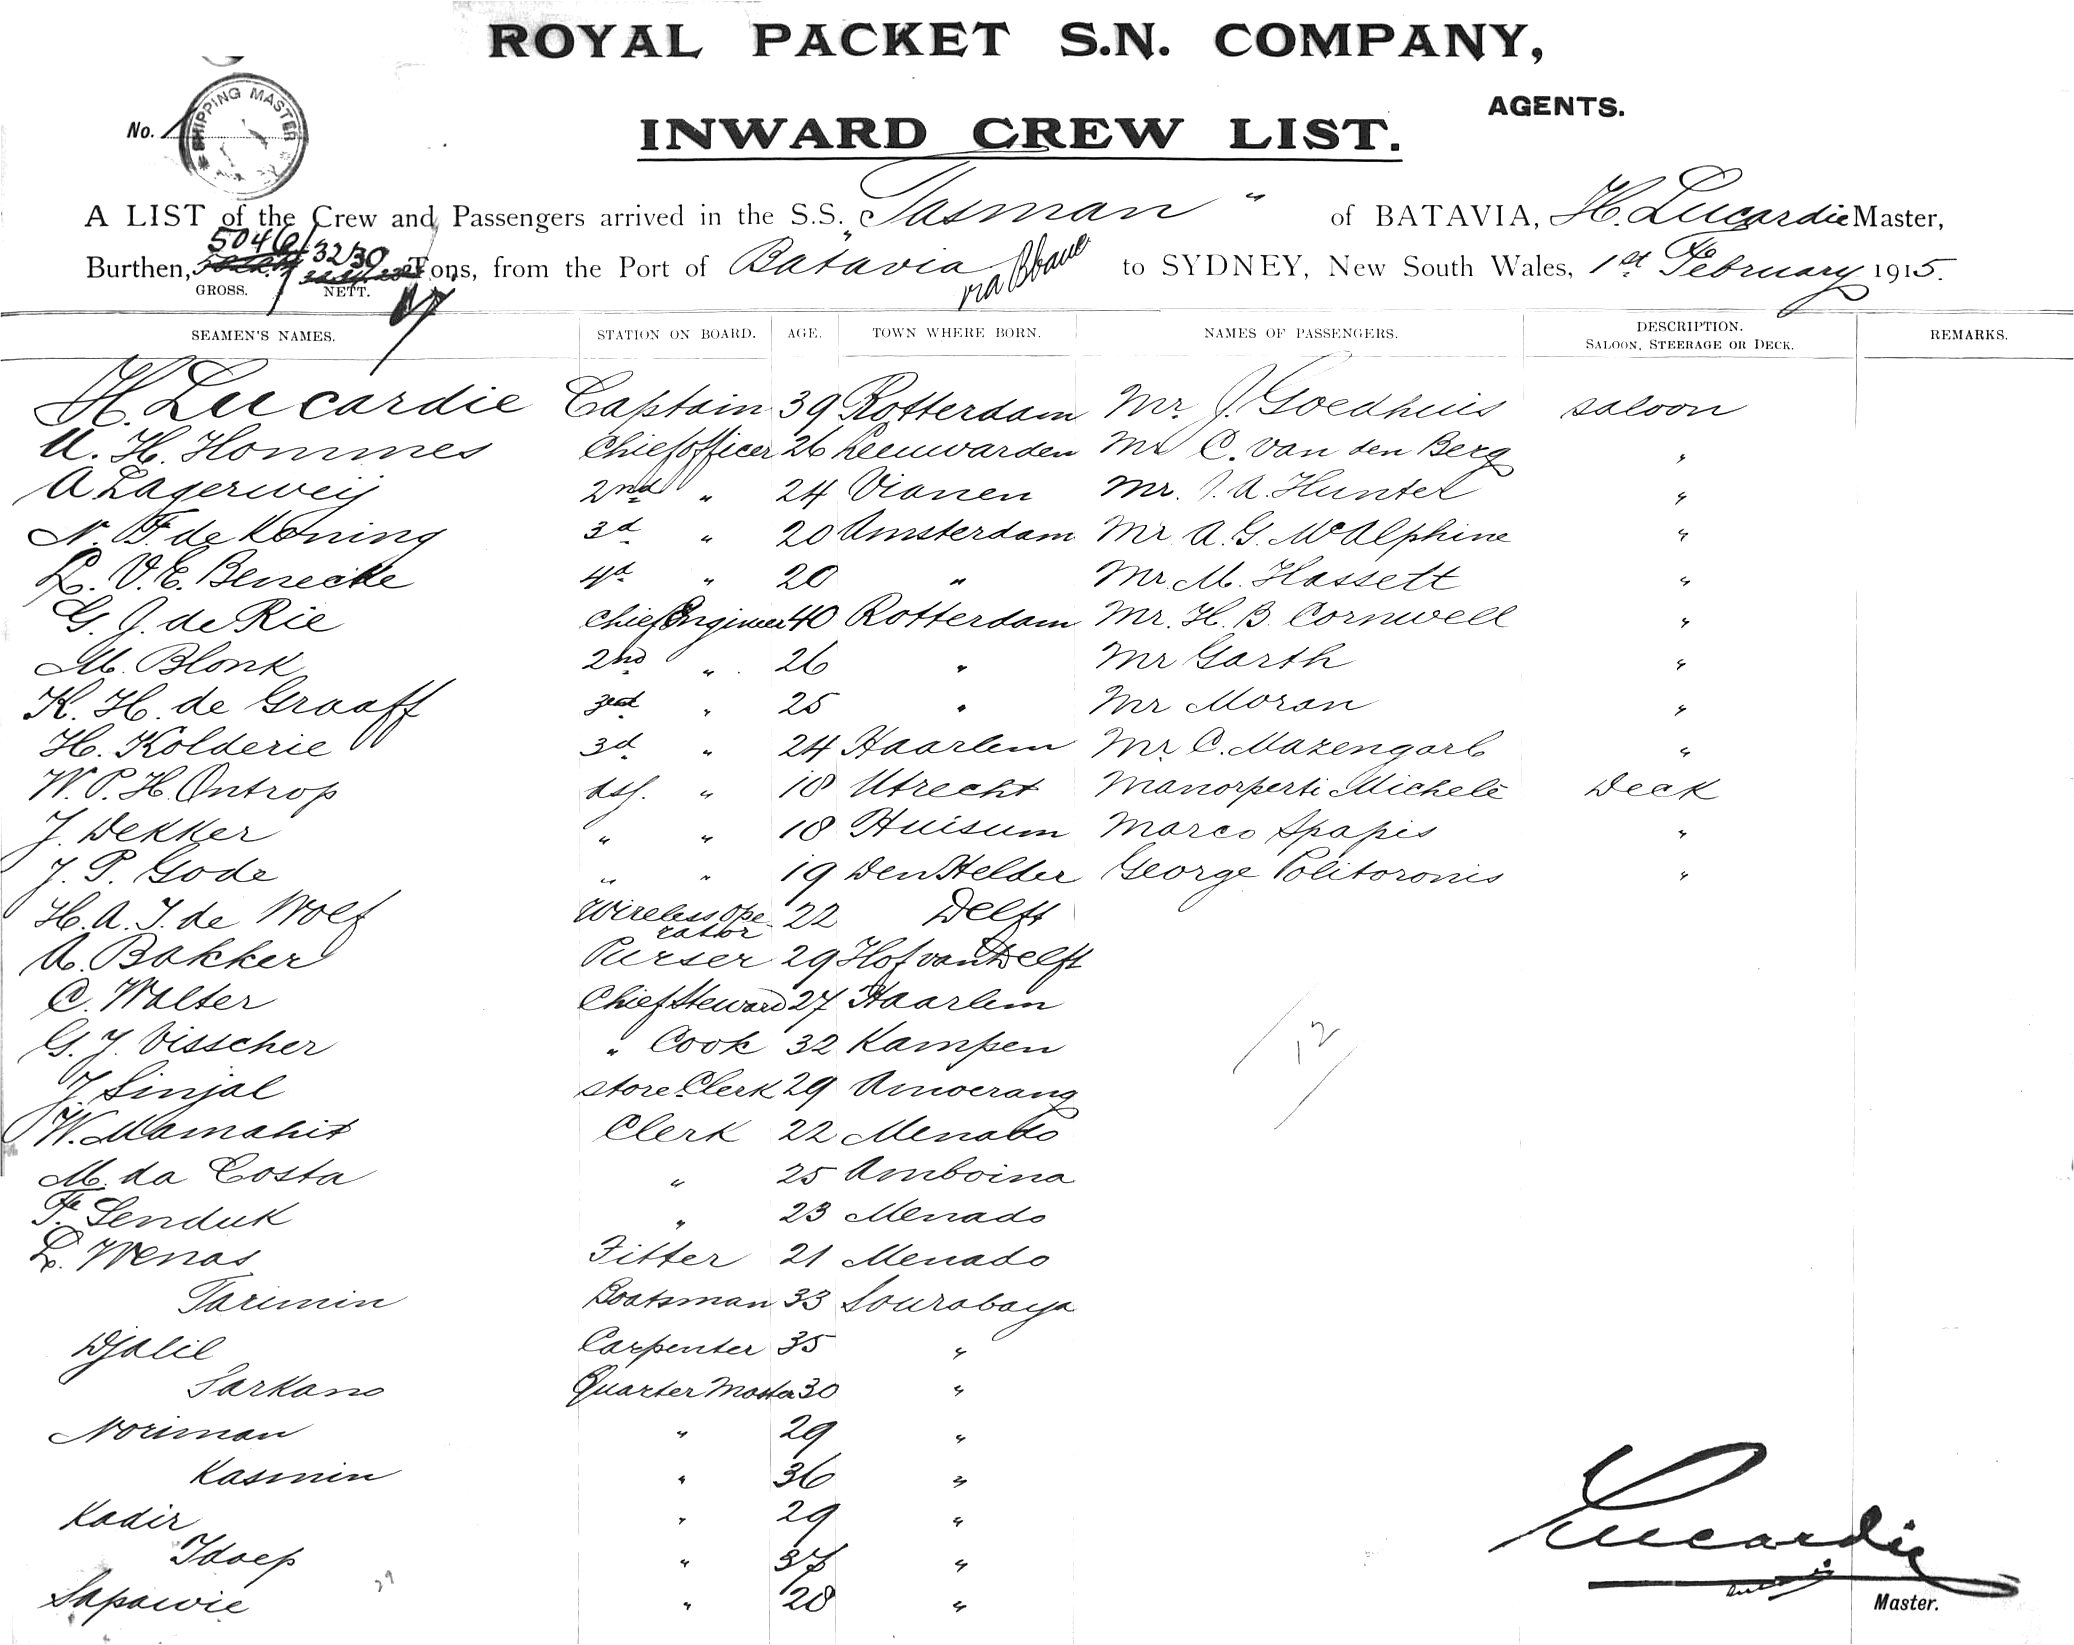 ROYAL PACKET S.N. COMPANY,
AGENTS.
No. 1
SHIPPING MASTER
INWARD CREW LIST.
A LIST of the Crew and Passengers arrived in the S.S. "Tasman" of BATAVIA, H. Lucardie Master,
Burthen, 5046/3230 Tons, from the Port of Batavia via Bbane to SYDNEY, New South Wales, 1st February 1915.
GROSS. NETT.
SEAMEN'S NAMES. STATION ON BOARD. AGE. TOWN WHERE BORN. NAMES OF PASSENGERS. DESCRIPTION. SALOON, STEERAGE OR DECK. REMARKS.
H. Lucardie Captain 39 Rotterdam Mr. J. Goedhuis saloon
A. H. Hommes Chief officer 26 Leeuwarden Mr C. van den Berg "
A Lagerweij 2nd " 24 Vianen Mr. J. A. Hunter "
N. F. de Koning 3d " 20 Amsterdam Mr A. G. McAlphine "
L. V. E. Benecke 4d " 20 " Mr. M. Hassett "
G. J. de Rie chief Engineer 40 Rotterdam Mr. H. B. Cornwell "
M. Blonk 2nd " 26 " Mr Garth "
K. H. de Graaff " 25 " Mr Moran "
H. Kolderie 3d " 24 Haarlem Mr. C. Mazengarb "
W. P. H. Ontrop ass. " 18 Utrecht Manorperti Michele Deck
J. Dekker " " 18 Huisum Marco Spapis "
J. P. Gode " " 19 Den Helder George Politoronis "
H. A. J. de Wolf Wireless Ope- 22 Delft
rator
A. Bakker Purser 29 Hof van Delft
C. Walter Chief Steward 27 Haarlem
G. J. Visscher " Cook 32 Kampen
12
J. Sinjal store Clerk 29 Amoerang
W. Mamahit Clerk 22 Menado
M. da Costa " 25 Amboina
F. Senduk " 23 Menado
L. Wenas Fitter 21 Menado
Tarimin Boatsman 33 Sourabaya
Djalil Carpenter 35 "
Sarkano Quarter Master 30 "
Noriman " 29 "
Kasmin " 36 "
Kadir " 29 "
Idoep " 37 "
Sapawie 29 " 28 "
Lucardie
Master.